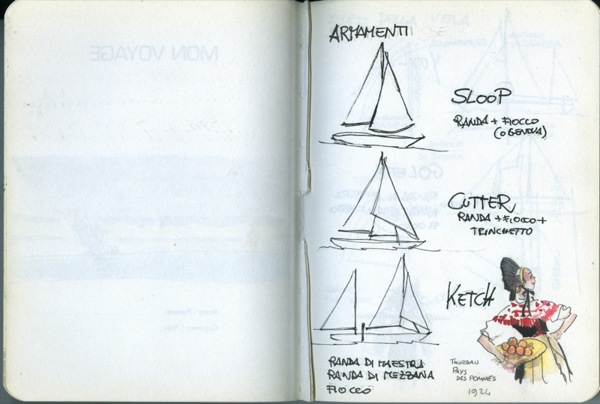 MON VOYAGE
ARMAMENTI
SLOOP
RANDA + FIOCCO
(O GENOVA)
CUTTER
RANDA + FIOCCO +
TRINCHETTO
KETCH
RANDA DI MAESTRA
RANDA DI MEZZANA
FIOCCO
THURGAU
PAYS
DES POMMES
1924